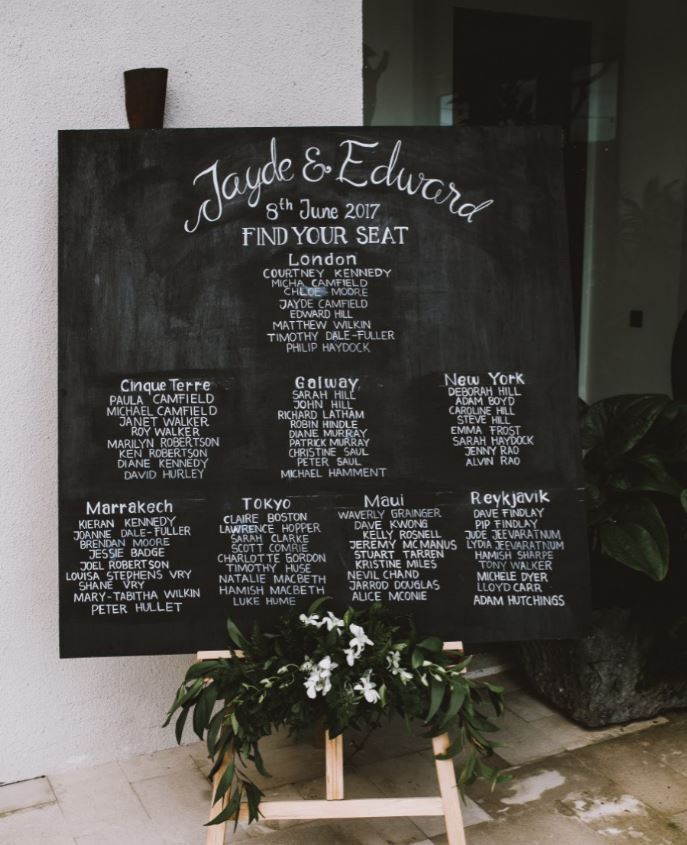 Jayde & Edward
8th June 2017
FIND YOUR SEAT
London
COURTNEY KENNEDY
MICHA CAMFIELD
CHLOE MOORE
JAYDE CAMFIELD
EDWARD HILL
MATTHEW WILKIN
TIMOTHY DALE-FULLER
PHILIP HAYDOCK
Cinque Terre
PAULA CAMFIELD
MICHAEL CAMFIELD
JANET WALKER
ROY WALKER
MARILYN ROBERTSON
KEN ROBERTSON
DIANE KENNEDY
DAVID HURLEY
Galway
SARAH HILL
JOHN HILL
RICHARD LATHAM
ROBIN HINDLE
DIANE MURRAY
PATRICK MURRAY
CHRISTINE SAUL
PETER SAUL
MICHAEL HAMMENT
New York
DEBORAH HILL
ADAM BOYD
CAROLINE HILL
STEVE HILL
EMMA FROST
SARAH HAYDOCK
JENNY RAO
ALVIN RAO
Marrakech
KIERAN KENNEDY
JOANNE DALE-FULLER
BRENDAN MOORE
JESSIE BADGE
JOEL ROBERTSON
LOUISA STEPHENS VRY
SHANE VRY
MARY-TABITHA WILKIN
PETER HULLET
TOKYO
CLAIRE BOSTON
LAWRENCE HOPPER
SARAH CLARKE
SCOTT COMRIE
CHARLOTTE GORDON
TIMOTHY HUSE
NATALIE MACBETH
HAMISH MACBETH
LUKE HUME
Maui
WAVERLY GRAINGER
DAVE KWONG
KELLY ROSNELL
JEREMY MCMANUS
STUART TARREN
KRISTINE MILES
NEVIL CHAND
JARROD DOUGLAS
ALICE MCONIE
Reykjavik
DAVE FINDLAY
PIP FINDLAY
JUDE JEEVARATNUM
LYDIA JEEVARATNUM
HAMISH SHARPE
TONY WALKER
MICHELE DYER
LLOYD CARR
ADAM HUTCHINGS